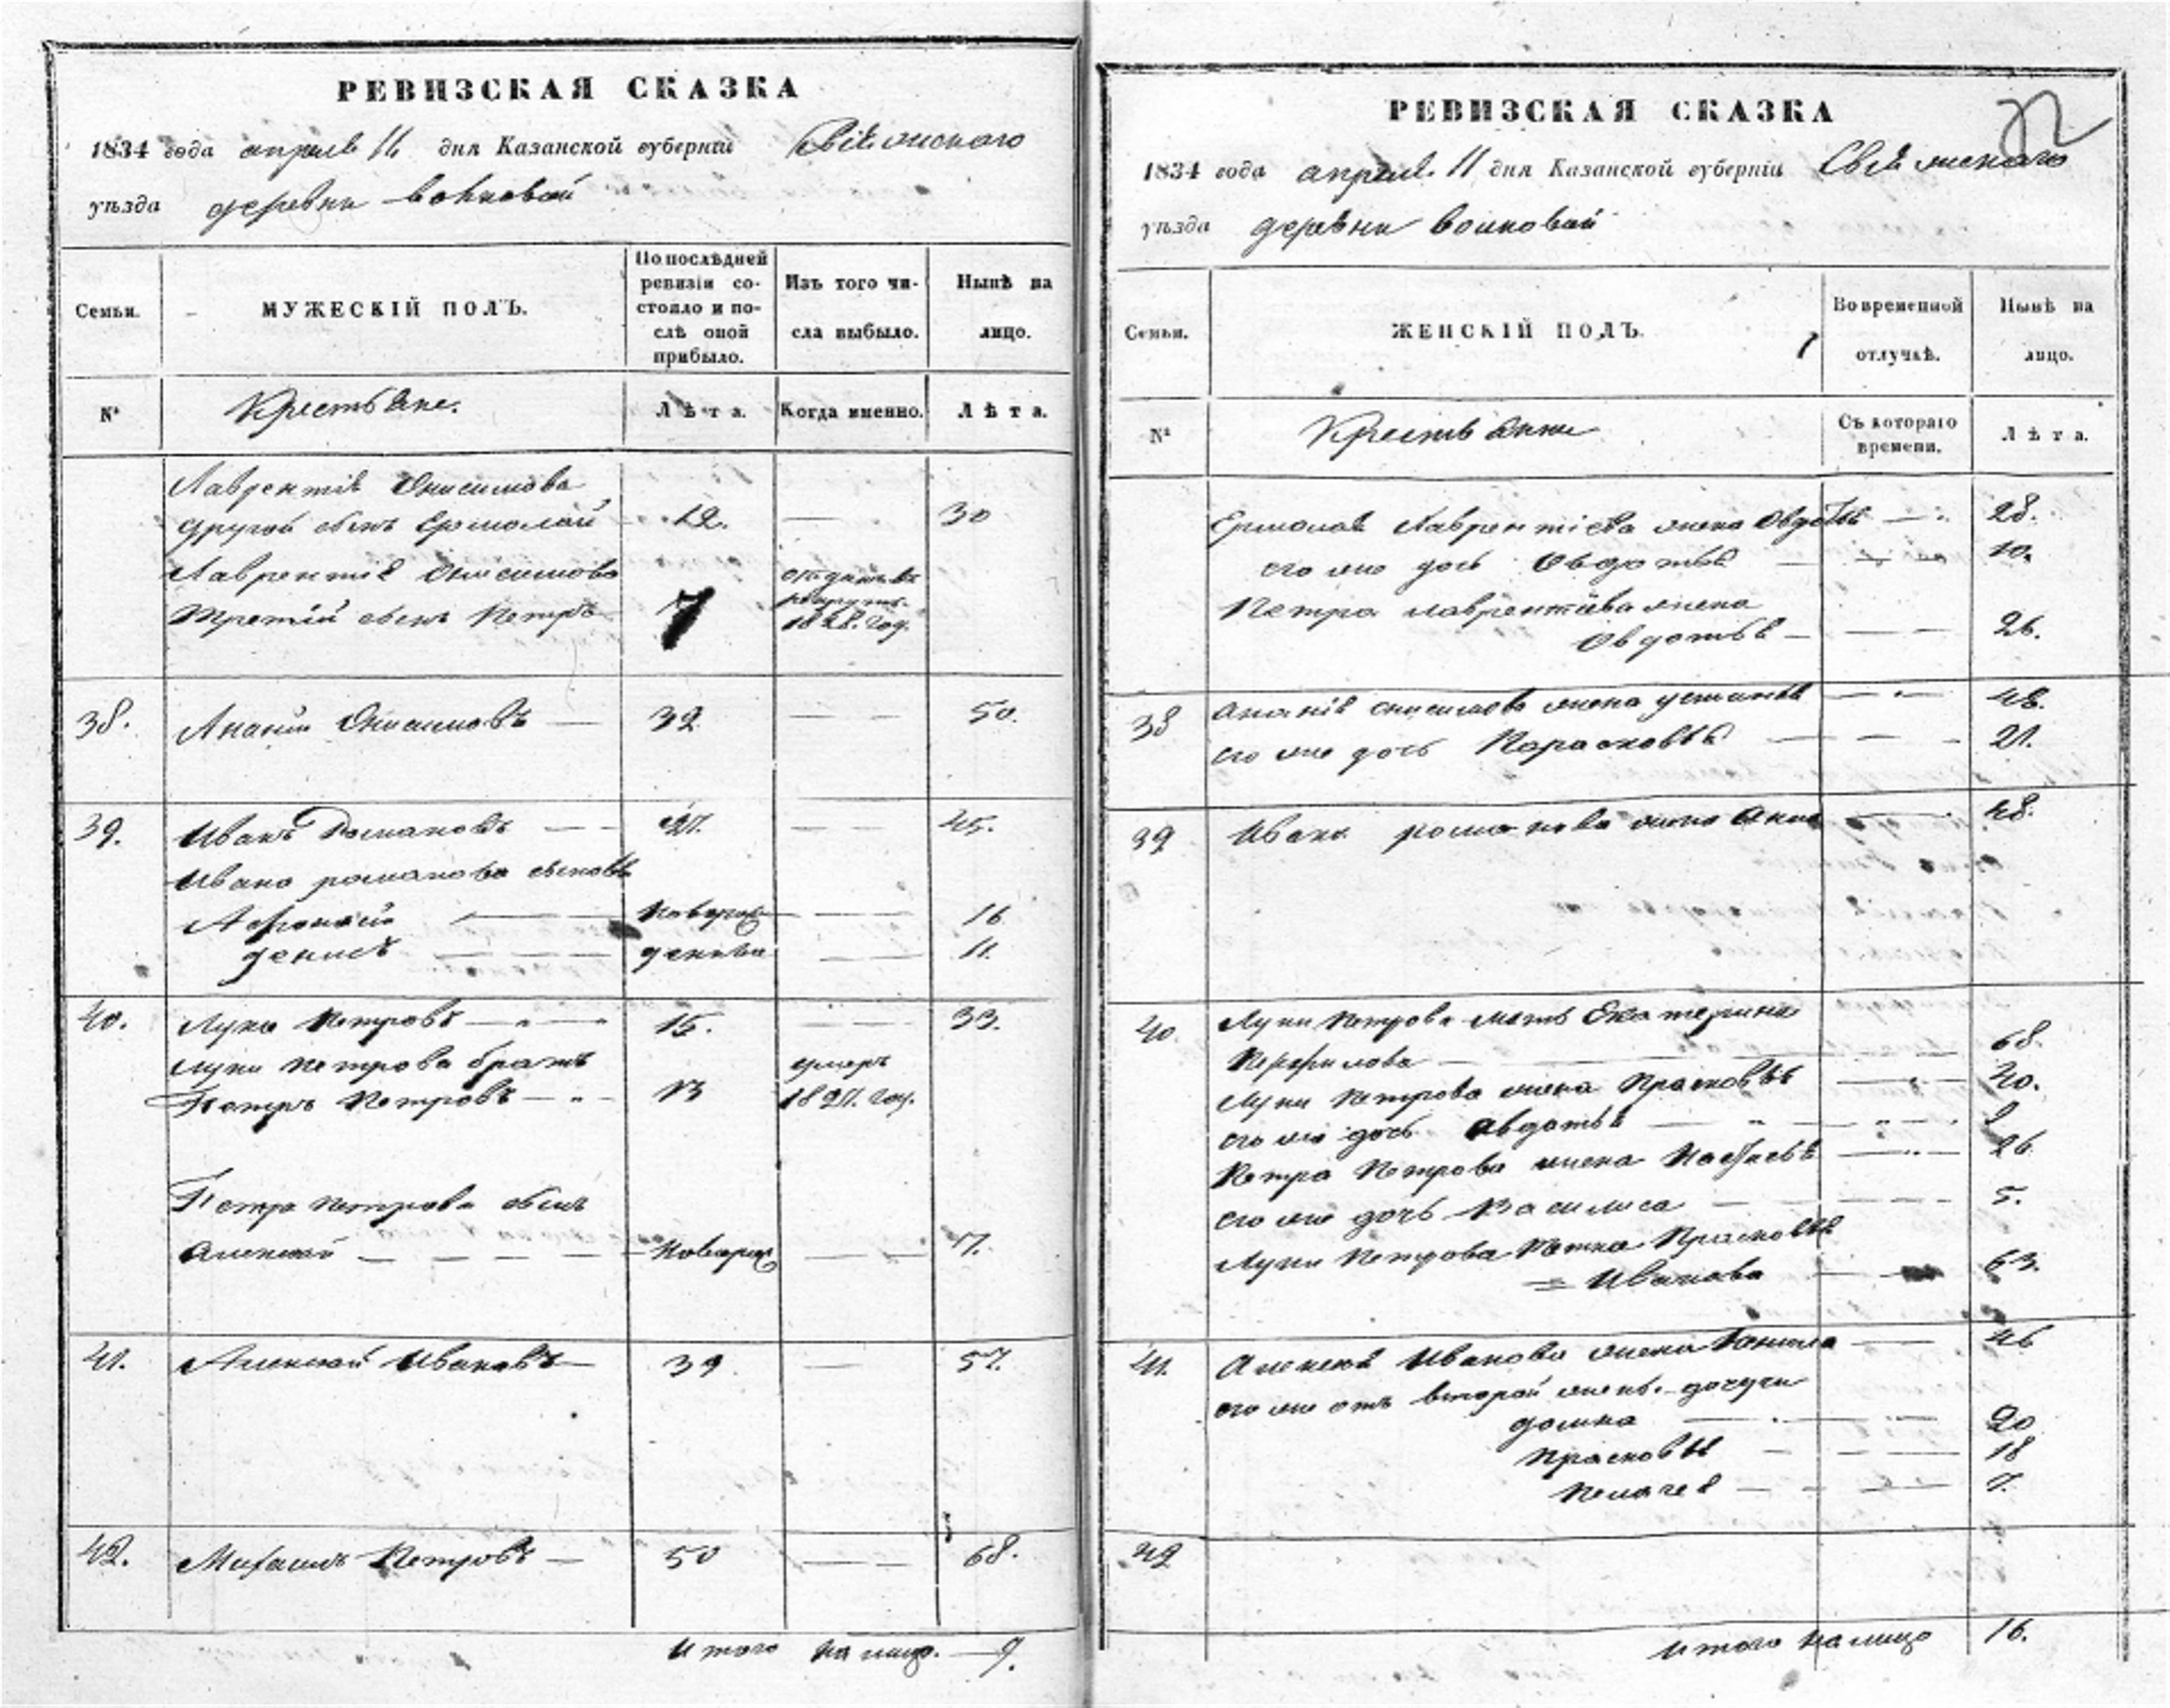 РЕВИЗСКАЯ СКАЗКА
1834 года апреля 11 дня Казанской губерніи Свіяжскаго
уѣзда деревни
Семьи.
МУЖЕСКІЙ ПОЛЪ.
По послѣдней ревизіи состояло и послѣ оной прибыло.
Изъ того числа выбыло.
Нынѣ на лицо.
№
Крестьяне.
Лѣта.
Когда именно.
Лѣта.
Лаврентія Онисимова
другой сынъ Ермолай 12. — 30
Лаврентія Онисимова
третій сынъ Петръ 7 отданъ въ рекруты 1828. год.
38. Ананій Онисимовъ — 32 — — 50.
39. Иванъ Романовъ — — 27. — — 45.
Ивана романова сыновья
Афонасій — новорож — — 16
денисъ — — — — 11.
40. Лука Петровъ — „ — „ 15. — — 33.
Луки петрова братъ умеръ
Петръ Петровъ — „ — 13 1827. год.
Петра петрова сынъ
Алексей — — — — новорож — — 17.
41. Алексей Ивановъ — 39. — 57.
42. Михаилъ Петровъ — 50 — — 68.
Итого на лицо. — 9.
РЕВИЗСКАЯ СКАЗКА
1834 года апреля 11 дня Казанской губерніи Свіяжскаго
уѣзда деревни
Семьи.
ЖЕНСКІЙ ПОЛЪ.
Во временной отлучкѣ.
Нынѣ на лицо.
№
Съ котораго времени.
Лѣта.
Ермолая Лаврентіева жена Овдотья — 28.
его же дочь Овдотья — 10.
Петра лаврентіева жена
Овдотья — — — 26.
38 Ананія онисимова жена устинья — „ — 48.
его же дочь Парасковья — — — 21.
39 Ивана романова жена Анна — 48.
40. Луки Петрова мать Екатерина
Перфилова — 68.
Луки Петрова жена Прасковья — 20.
его же дочь Авдотья — „ — „ — 9
Петра Петрова жена Настасья — „ — 26
его же дочь Василиса — — — 5.
Луки Петрова тетка Прасковья
= Иванова — 63.
41. Алексея Иванова жена — 46
его же отъ второй жены дочери
домна — 20
Прасковья — — — 18
Пелагея — — — 7.
42
Итого на лицо 16.